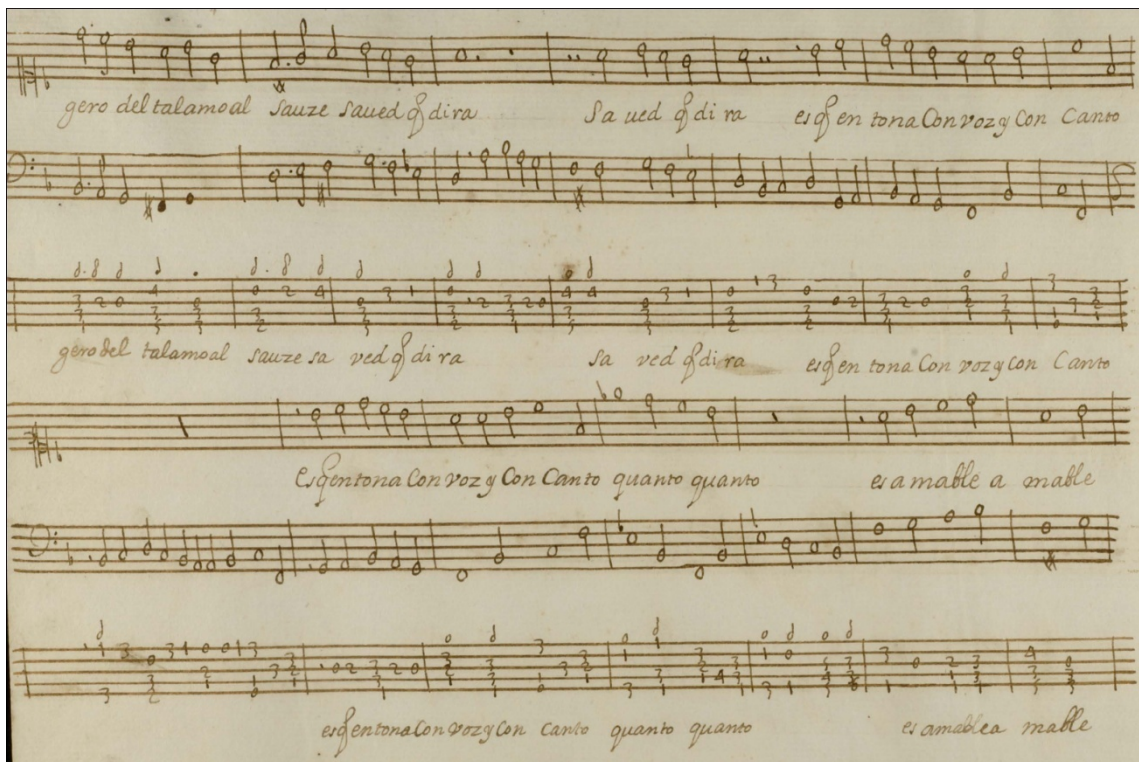 gero del talamo al sauze saued q̃ dira sa ued q̃ di ra es q̃ en tona Con voz y Con Canto
gero del talamo al sauze sa ved q̃ di ra sa ved q̃ di ra es q̃ en tona Con voz y Con Canto
es q̃ entona Con voz y Con Canto quanto quanto es a mable a mable
es q̃ entona Con voz y Con Canto quanto quanto es amable a mable